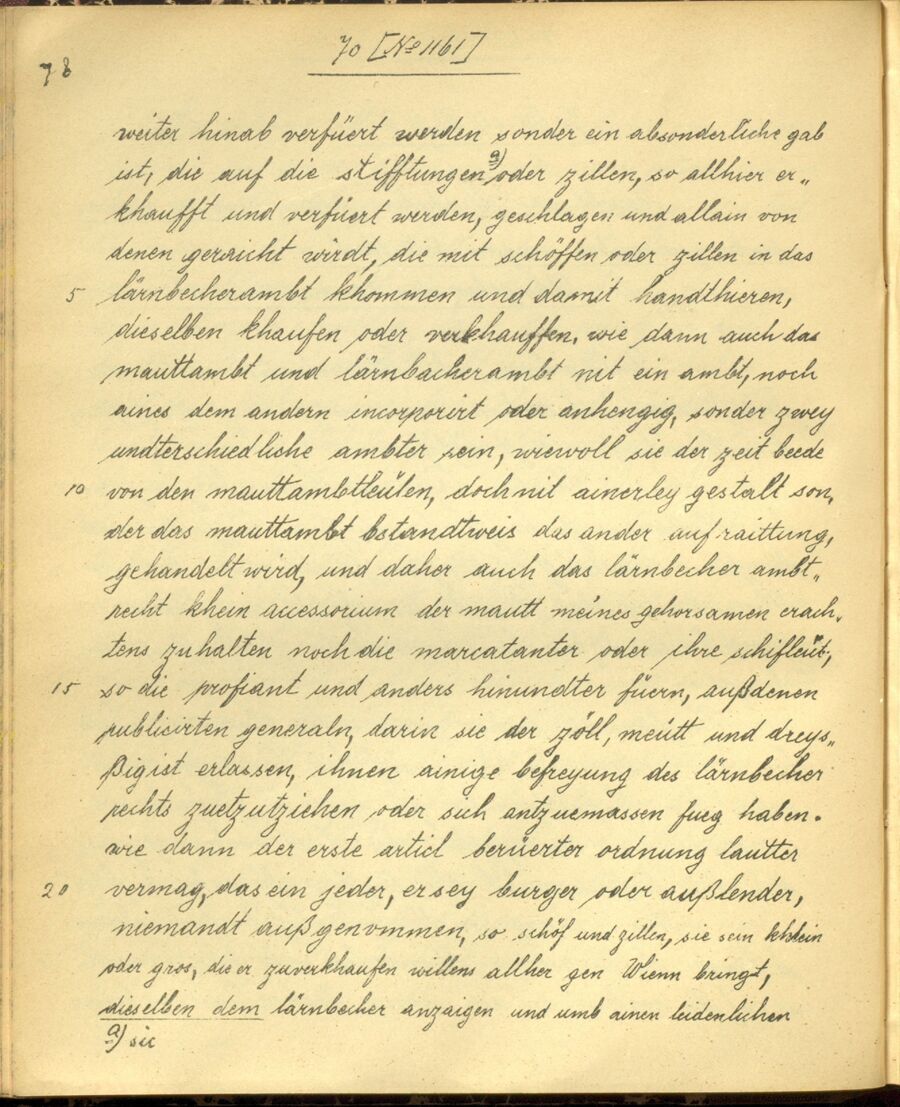 70 [No 1161]
78
weiter hinab verfüert werden sonder ein absonderliche gab
ist, die auf die stifftungen a) oder zillen, so allhier er„
khaufft und verfüert werden, geschlagen und allain von
denen geraicht wirdt, die mit schöffen oder zillen in das
5 lärnbecherambt khommen und damit handthieren,
dieselben khaufen oder verkhauffen, wie dann auch das
mauttambt und lärnbecherambt nit ein ambt, noch
aines dem andern incorporirt oder anhengig, sonder zwey
undterschiedliche ambter sein, wiewoll sie der zeit beede
10 von den mauttambtleüten, doch nit ainerley gestalt son„
der das mauttambt bstandtweis das ander auf raittung,
gehandelt wird, und daher auch das lärnbecher ambt„
recht khein accessorium der mautt meines gehorsamen erach„
tens zu halten noch die marcatanter oder ihre schifleüt,
15 so die profiant und anders hinundter füern, auß denen
publicirten generaln, darin sie der zöll, meütt und dreys„
ßigist erlassen, ihnen ainige befreyung des lärnbecher
rechts zuetzutziehen oder sich antzuemassen fueg haben.
wie dann der erste articl berüerter ordnung lautter
20 vermag, das ein jeder, er sey burger oder außlender,
niemandt außgenommen, so schöf und zillen, sie sein khlein
oder gros, die er zuverkhaufen willens allher gen Wienn bringt,
dieselben dem lärnbecher anzaigen und umb ainen leidenlichen
a) sic